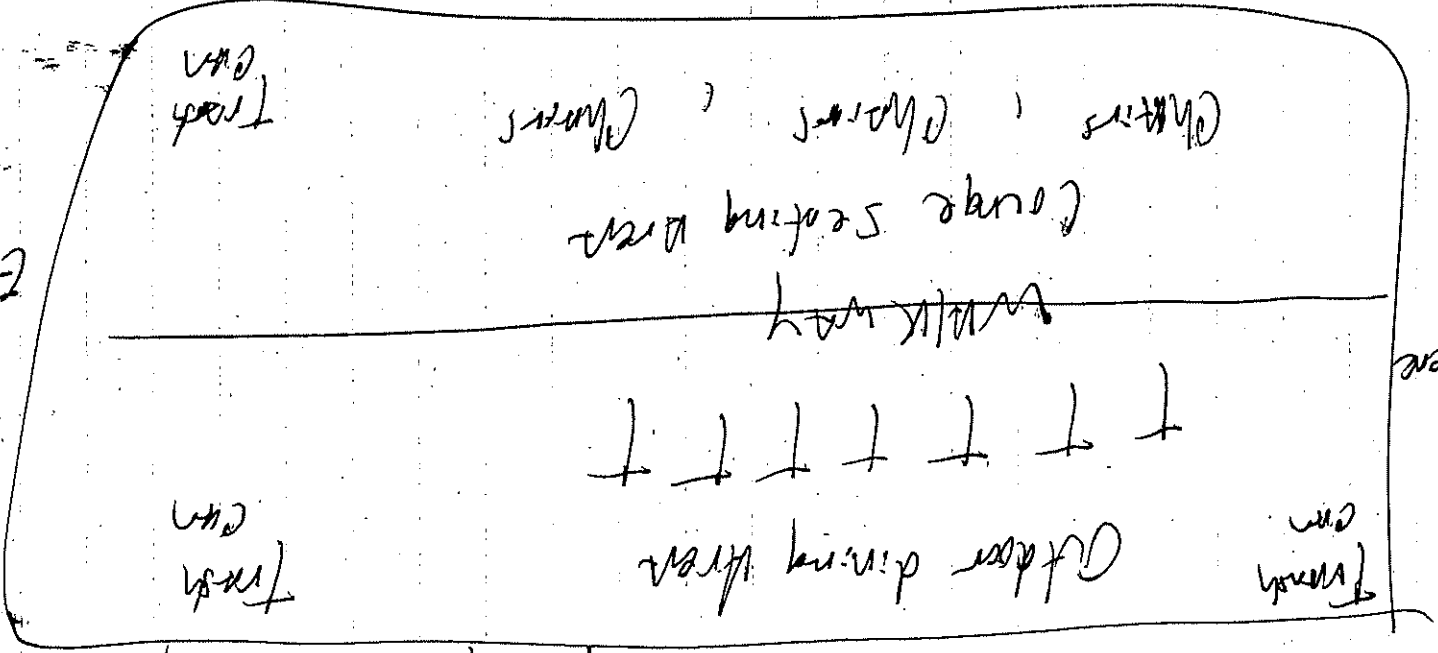 Trash Can
Outdoor dining Area
Trash Can
T T T T T T T
WAlK WAY
Lounge Seating Area
Chairs , Chairs , Chairs
Trash Can